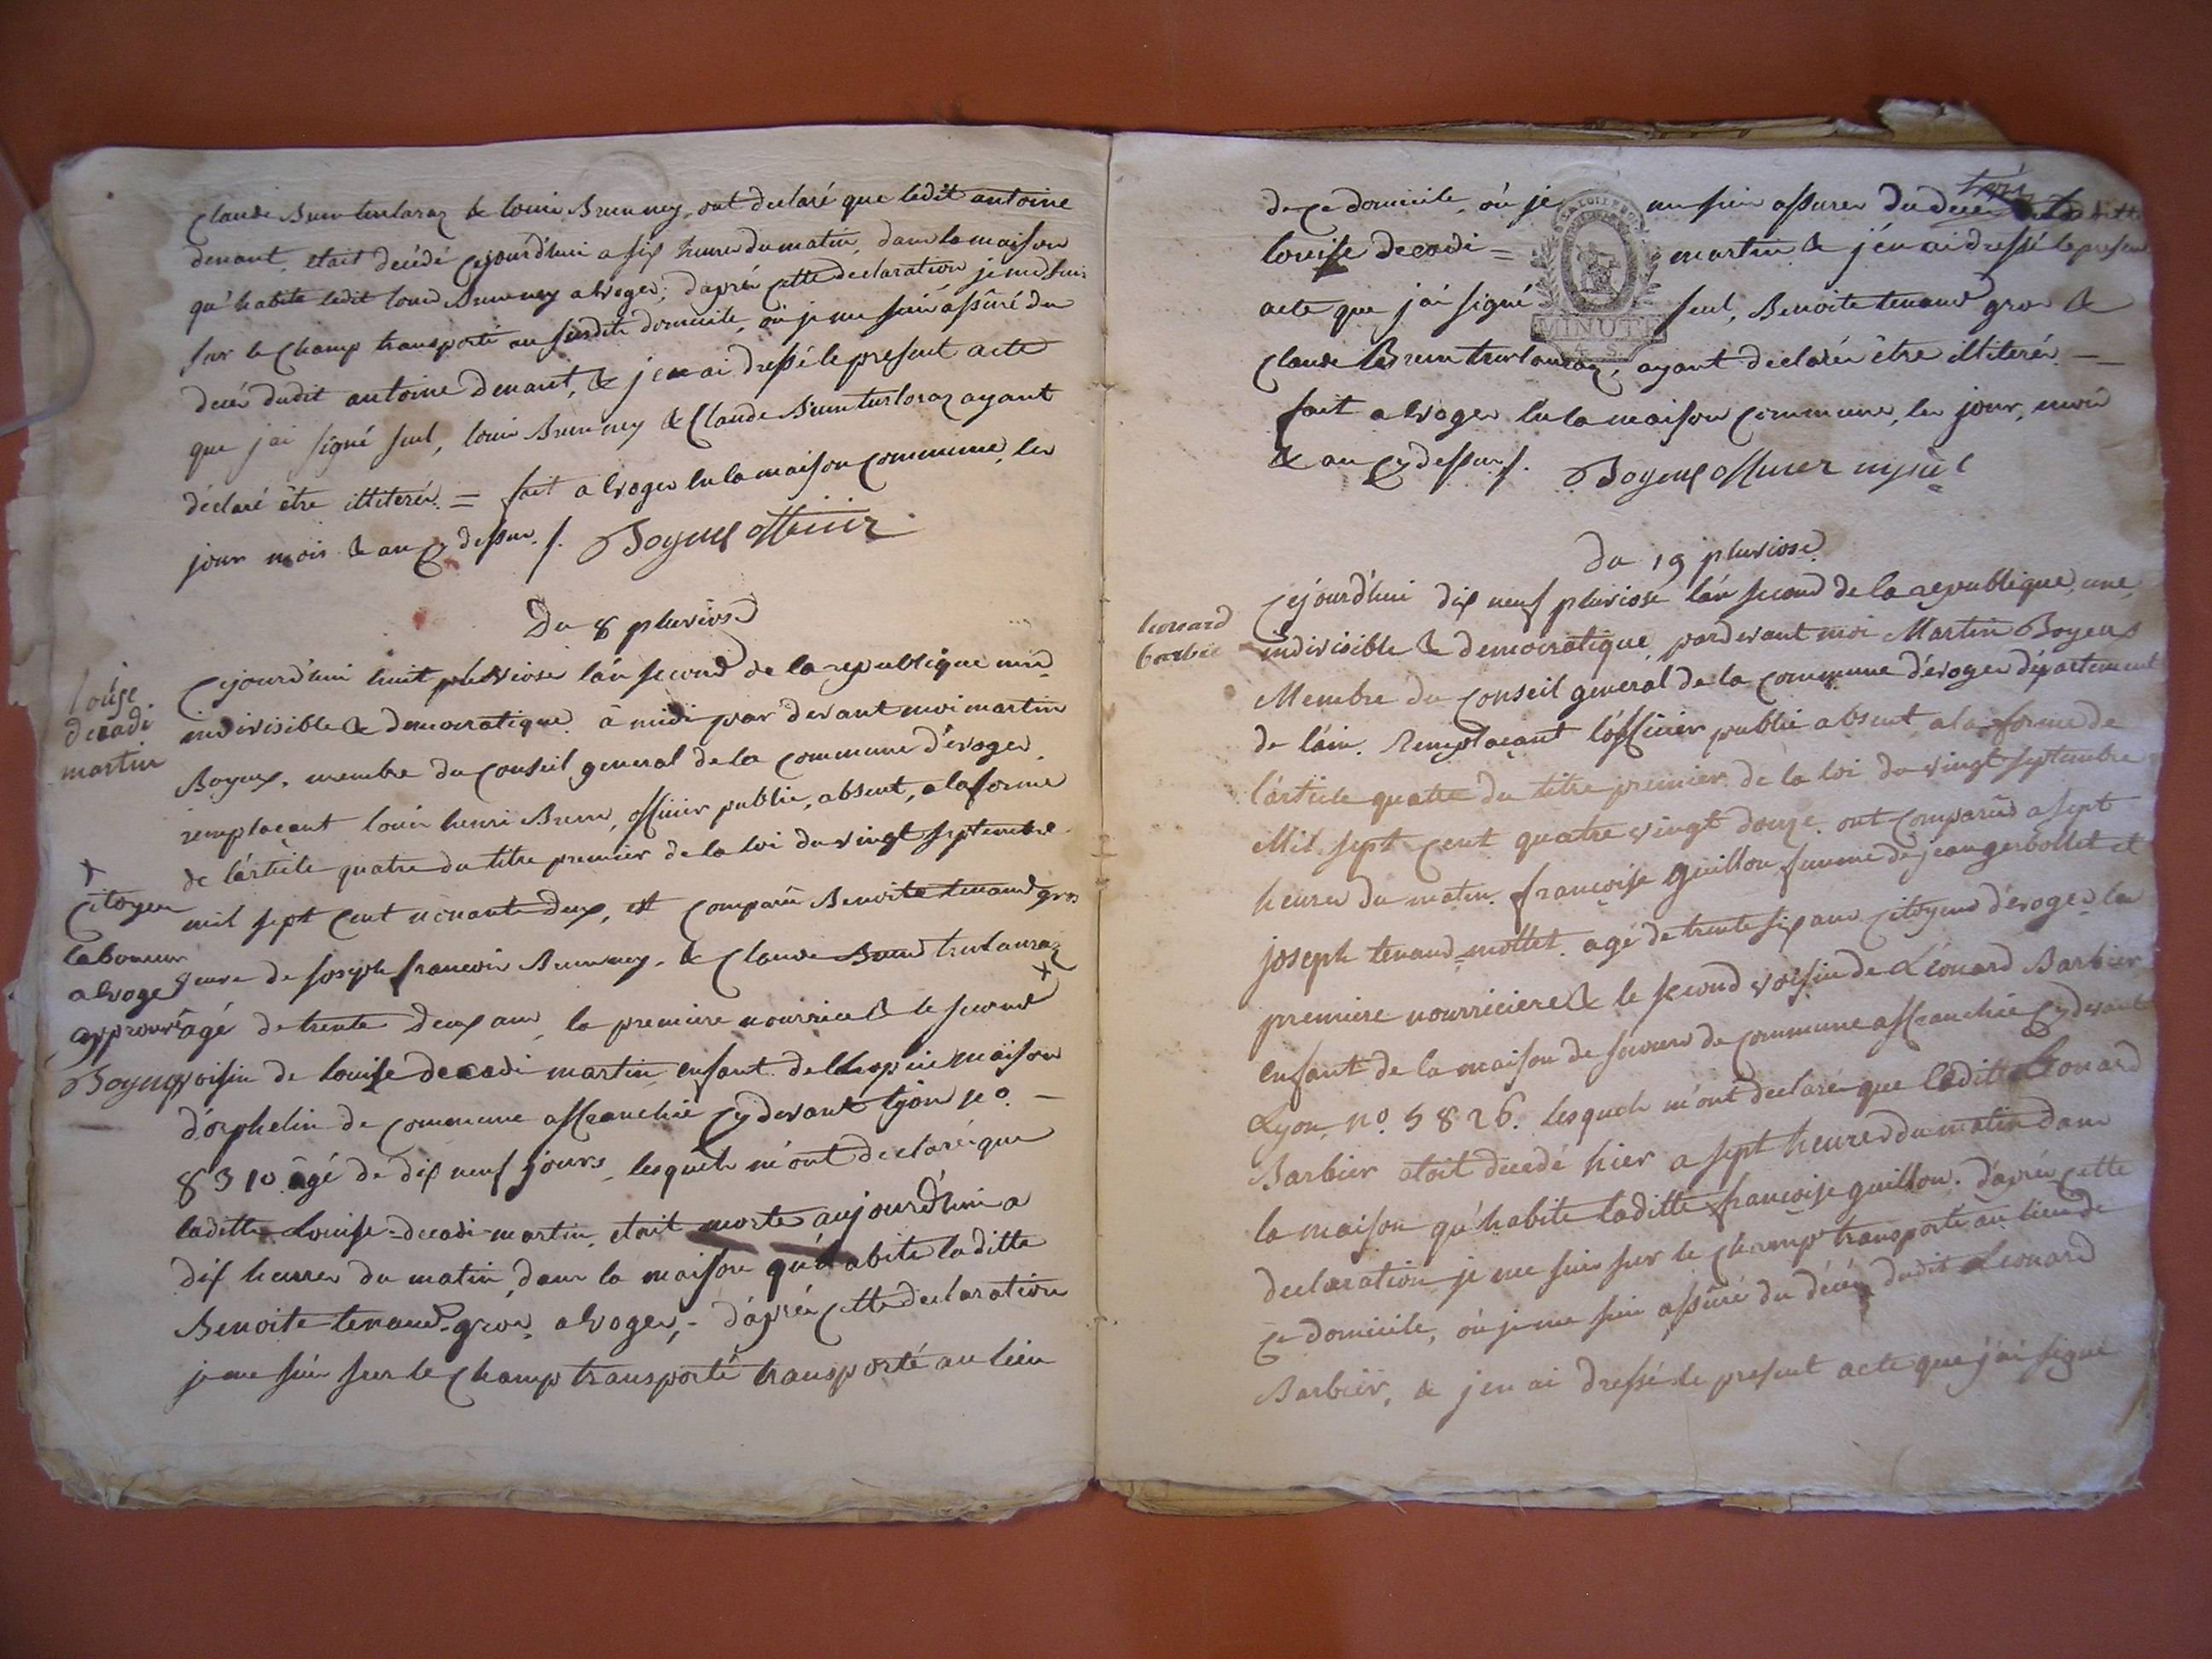 Claude Brun turlaraz & louis Brunney, ont declaré que ledit antoine
denant, etait decédé cejourd'hui a six heures du matin, dans la maison
qu'habite ledit louis Brunney a Evoges; d'après cette declaration je me suis
sur le champ transporté au susdit domicile, où je me suis assûré du
decès dudit antoine denant, & j'en ai dressé le present acte
que j'ai signé seul, louis Brunney & Claude Brun turlaraz ayant
déclaré être illiterés. = fait a Evoges en la maison commune, les
jour mois & an cy dessus. /. Boyeux officier
Du 8 pluviose
louise
decadi
martin
Cejourd'hui huit pluviose l'an second de la republique une
indivisible & democratique à midi par devant moi martin
Boyeux, membre du conseil general de la commune d'évoges
remplaçant louis henri Brun, officier public, absent, a la forme
de l'article quatre du titre premier de la loi du vingt septembre
mil sept cent nonante deux, est comparû Benoite tenand gros
veuve de joseph francois Brunney, & Claude Brun trulauraz x
x
Citoyen
laboureur
a Evoges
approuvé
Boyeux
agé de trente deux ans, la premiere nourrice & le second
voisin de louise decadi martin enfant de l'hospice maison
d'orphelin de commune affranchie cy devant lyon no. –
8310 âgé de dix neuf jours, lesquels m'ont declaré que
laditte Louise-decadi-martin, etait morte aujourd'hui a
dix heures du matin, dans la maison qu'habite laditte
Benoite tenand-gros, a Evoges, - d'après cette declaration
je me suis sur le champ transporté transporté au lieu
de ce domicile, où je me suis assurer du decès de laditte
louise decadi = martin & j'en ai dressé le present
acte que j'ai signé seul, Benoite tenand gros &
Claude Brun trurlauraz, ayant declarés être illiterés —
fait a Evoges en la maison commune, les jour, mois
& an cy dessus /. Boyeux officier
MINUTE
du 19 pluviose
leonard
barbier
Cejourd'hui dix neuf pluviose l'an second de la republique, une,
indivisible & democratique, pardevant moi Martin Boyeux
Membre du conseil general de la commune d'évoges département
de l'ain. Remplaçant l'officier public absent, a la forme de
l'article quatre du titre premier de la loi du vingt septembre
Mil sept cent quatre vingt douze. ont comparus a sept
heures du matin. françoise guillon femme de jean gerbollet et
joseph tenand-mollet. agé de trente six ans citoyens d'évoges la
premiere nourriciere & le second voisin de Léonard Barbier
enfant de la maison de secours de commune affranchie cy devant
Lyon, no. 5826. lesquels m'ont declaré que ledit Leonard
Barbier etoit decedé hier a sept heures du matin dans
la maison qu'habite laditte françoise guillon. d'après cette
declaration je me suis sur le champ transporté au lieu de
ce domicile, où je me suis assûré du décés dudit Leonard
Barbier, & j'en ai dressé le present acte que j'ai signé